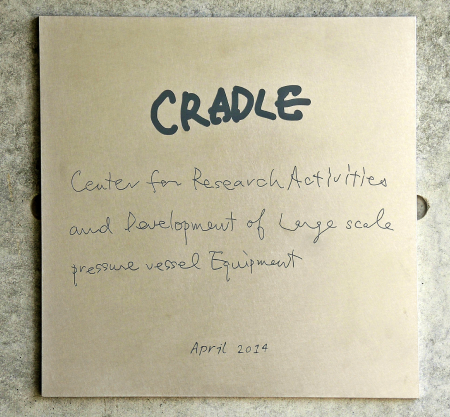 CRADLE
Center for Research Activities
and Development of Large scale
pressure vessel Equipment
April 2014